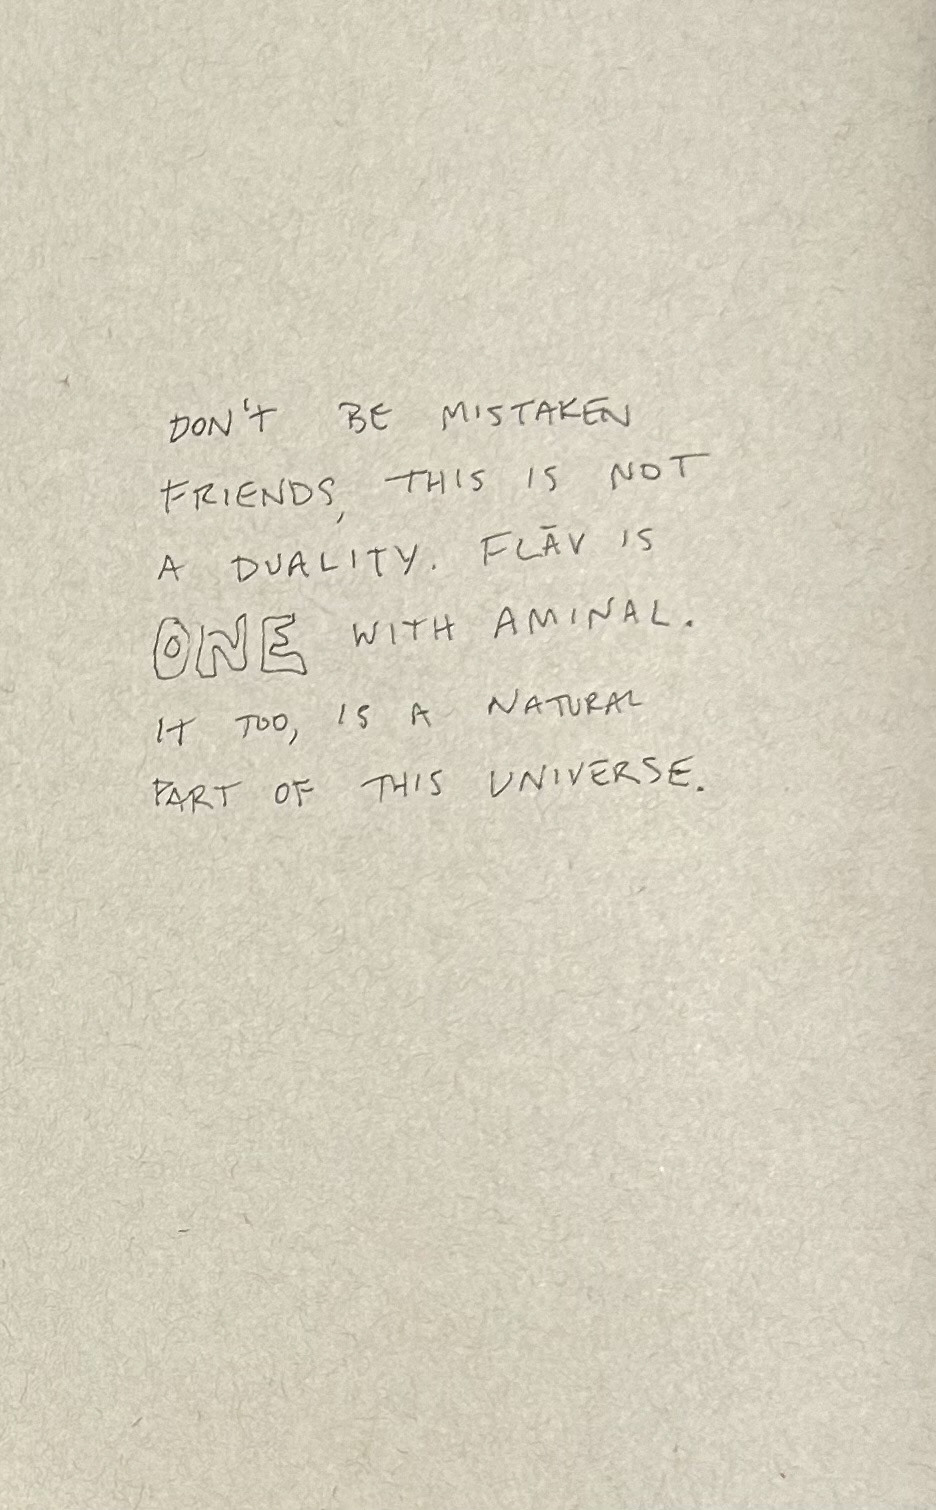 DON't BE MISTAKEN
FRIENDS, THIS IS NOT
A DUALITY. FLĀV IS
ONE WITH AMINAL.
It TOO, IS A NATURAL
PART OF THIS UNIVERSE.